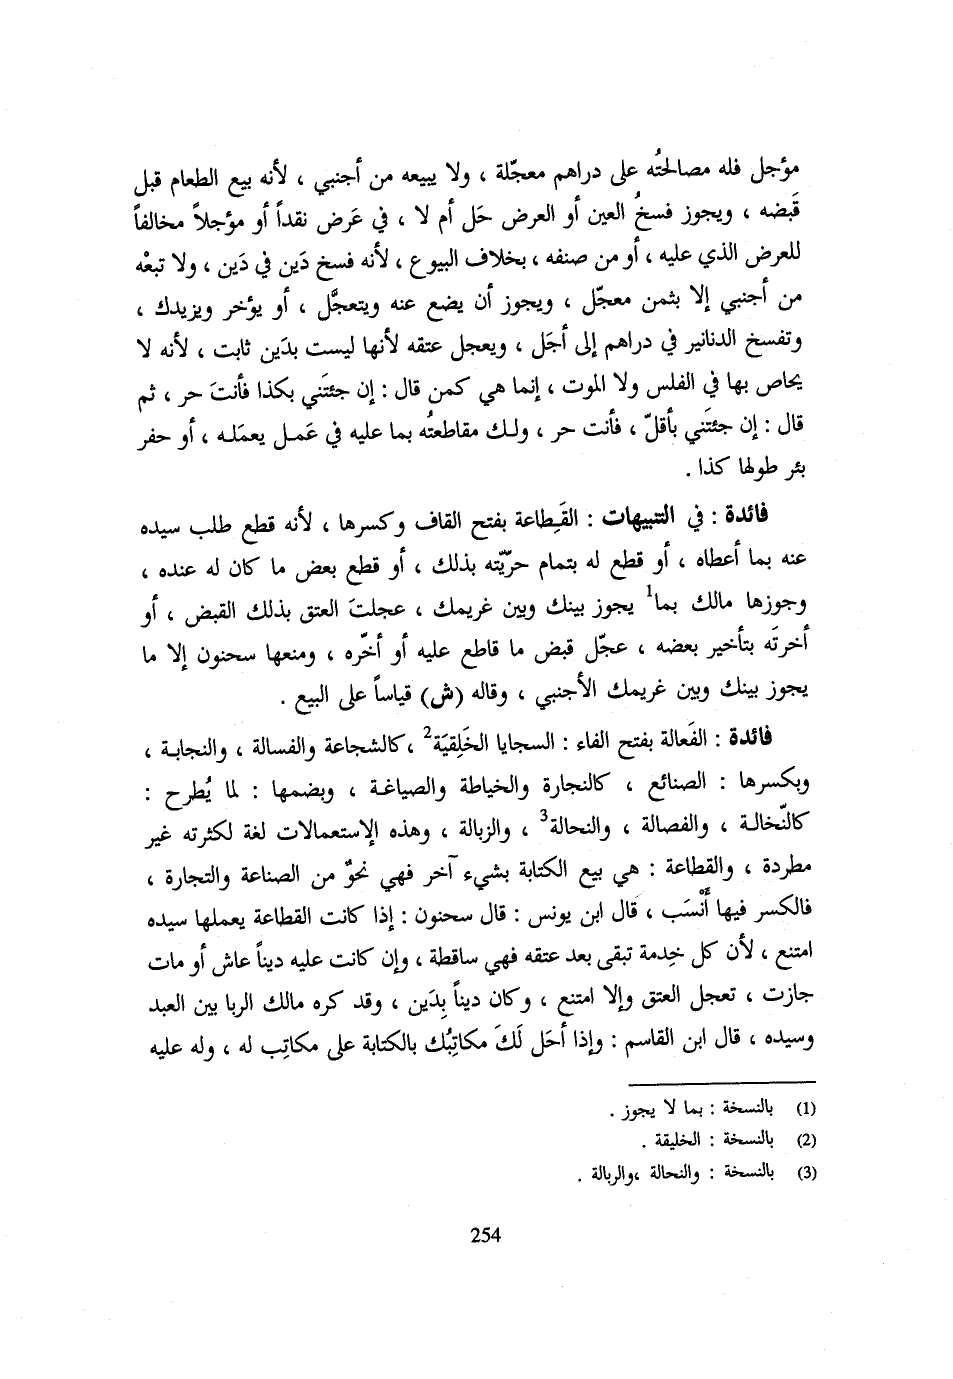 مؤجل فله مصالحتُه على دراهم معجّلة ، ولا يبيعه من أجنبي ، لأنه بيع الطعام قبل
قَبضه ، ويجوز فسخُ العين أو العرض حَل أم لا ، في عَرض نقداً أو مؤجلاً مخالفاً
للعرض الذي عليه ، أو من صنفه ، بخلاف البيوع ، لأنه فسخ دَين في دَين ، ولا تبعْه
من أجنبي إلا بثمن معجّل ، ويجوز أن يضع عنه ويتعجَّل ، أو يؤخر ويزيدك ،
وتفسخ الدنانير في دراهم إلى أجَل ، ويعجل عتقه لأنها ليست بدَين ثابت ، لأنه لا
يحاص بها في الفلس ولا الموت ، إنما هي كمن قال : إن جئتَني بكذا فأنتَ حر ، ثم
قال : إن جئتَني بأقلّ ، فأنت حر ، ولك مقاطعتُه بما عليه في عَمل يعمَله ، أو حفر
بئر طولها كذا .
فائدة : في التنبيهات : القَِطاعة بفتح القاف وكسرها ، لأنه قطع طلب سيده
عنه بما أعطاه ، أو قطع له بتمام حرّيّته بذلك ، أو قطع بعض ما كان له عنده ،
وجوزها مالك بما1 يجوز بينك وبين غريمك ، عجلتَ العتق بذلك القبض ، أو
أخرتَه بتأخير بعضه ، عجّل قبض ما قاطع عليه أو أخّره ، ومنعها سحنون إلا ما
يجوز بينك وبين غريمك الأجنبي ، وقاله (ش) قياساً على البيع .
فائدة : الفَعالة بفتح الفاء : السجايا الخَلِقيَة2 ، كالشجاعة والفسالة ، والنجابة ،
وبكسرها : الصنائع ، كالنجارة والخياطة والصياغة ، وبضمها : لما يُطرح :
كالنّخالة ، والفصالة ، والنحالة3 ، والزبالة ، وهذه الإستعمالات لغة لكثرته غير
مطردة ، والقطاعة : هي بيع الكتابة بشيء آخر فهي نحوٌ من الصناعة والتجارة ،
فالكسر فيها أَنْسَب ، قال ابن يونس : قال سحنون : إذا كانت القطاعة يعملها سيده
امتنع ، لأن كل خِدمة تبقى بعد عتقه فهي ساقطة ، وإن كانت عليه ديناً عاش أو مات
جازت ، تعجل العتق وإلا امتنع ، وكان ديناً بِدَين ، وقد كره مالك الربا بين العبد
وسيده ، قال ابن القاسم : وإذا أحَل لَكَ مكاتِبُك بالكتابة على مكاتِب له ، وله عليه
(1) بالنسخة : بما لا يجوز .
(2) بالنسخة : الخليقة .
(3) بالنسخة : والنحالة ،والربالة .
254